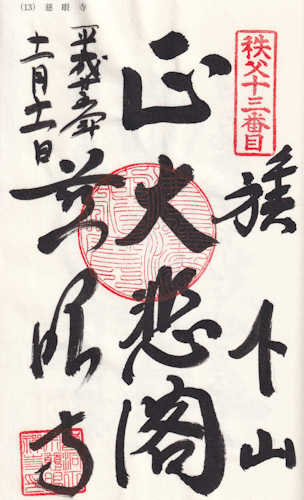 (13) 慈眼寺
秩父十三番目
旗下山
正大悲閣
慈眼寺
平成廿五年
十一月十一日